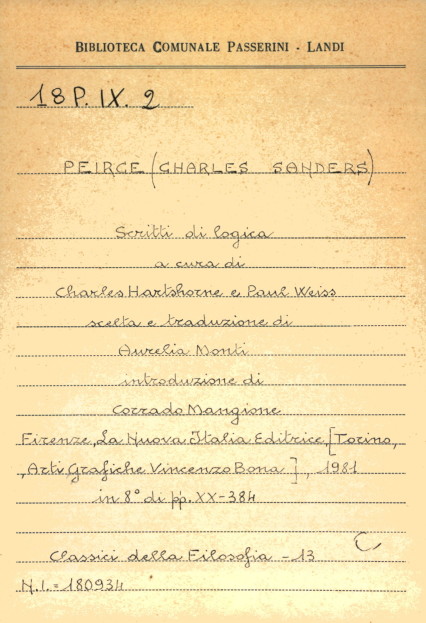 BIBLIOTECA COMUNALE PASSERINI - LANDI
18 P. IX. 2
PEIRCE (CHARLES SANDERS)
Scritti di logica
a cura di
Charles Hartshorne e Paul Weiss
scelta e traduzione di
Aurelia Monti
introduzione di
Corrado Mangione
Firenze, La Nuova Italia Editrice, [Torino,
Arti Grafiche Vincenzo Bona], 1981
in 8° di pp. XX-384
C
Classici della Filosofia - 13
N.I. = 180934